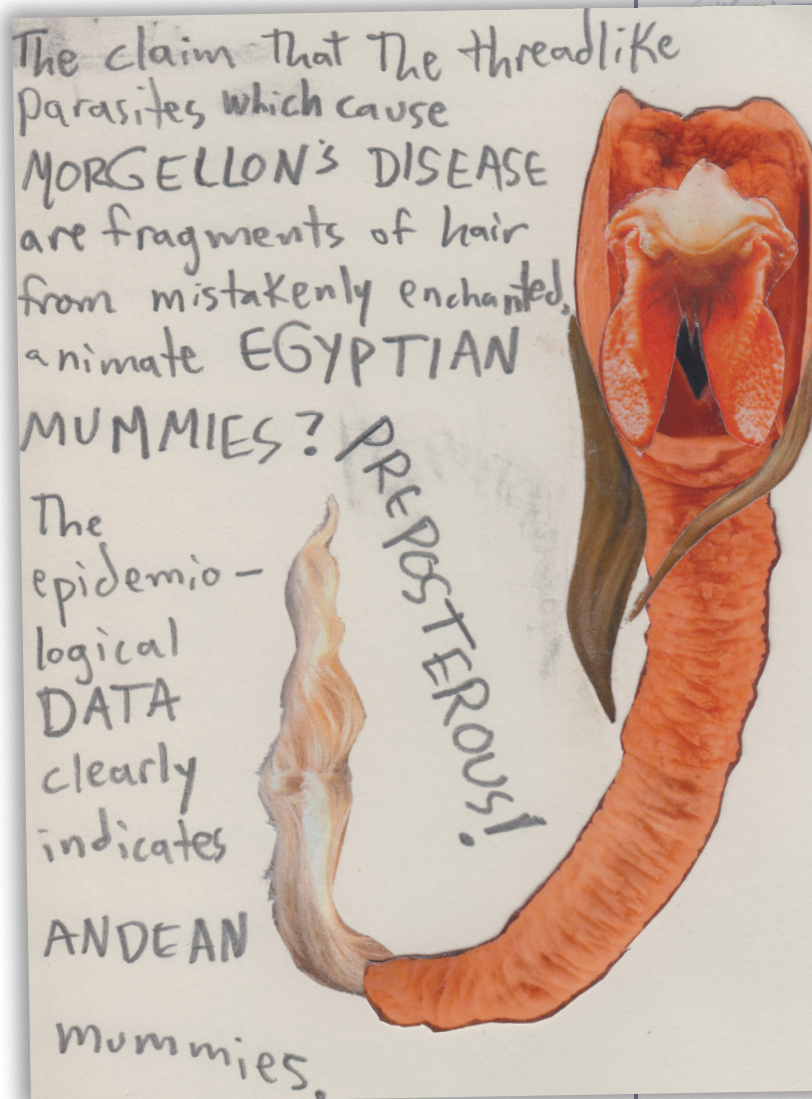 The claim that the threadlike
parasites which cause
MORGELLON'S DISEASE
are fragments of hair
from mistakenly enchanted,
animate EGYPTIAN
MUMMIES?
PREPOSTEROUS!
The
epidemio-
logical
DATA
clearly
indicates
ANDEAN
mummies.